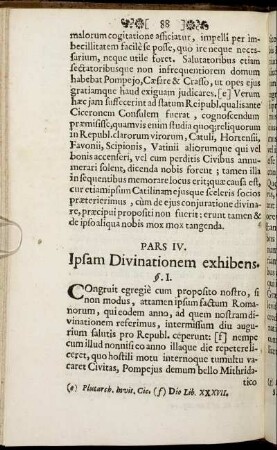 [ 88 ]
malorum cogitatione afficiatur, impelli per im-
becillitatem facilè se posse, quo ire neque neces-
sarium, neque utile foret. Salutatoribus etiam
sectatoribusque non infrequentiorem domum
habebat Pompejo, Cæsare & Crasso, ut opes ejus
gratiamque haud exiguam judicares. [e] Verum
hæc jam suffecerint ad statum Reipubl. qualis ante
Ciceronem Consulem fuerat, cognoscendum
præmisisse, quamvis enim studia quoq; reliquorum
in Republ. clarorum virorum, Catuli, Hortensii,
Favonii, Scipionis, Vatinii aliorumque qui vel
bonis accenseri, vel cum perditis Civibus annu-
merari solent, dicenda nobis forent; tamen illa
in sequentibus memorare locus erit; quæ causa est,
cur etiam ipsum Catilinam ejusque sceleris socios
præterierimus, cùm de ejus conjuratione divina-
re, præcipui propositi non fuerit; erunt tamen &
de ipso aliqua nobis mox mox tangenda.
PARS IV.
Ipsam Divinationem exhibens.
§. I.
Congruit egregiè cum proposito nostro, si
non modus, attamen ipsum factum Roma-
norum, qui eodem anno, ad quem nostram di-
vinationem referimus, intermissum diu augu-
rium salutis pro Republ. ceperunt: [f] nempe
cum illud non nisi eo anno illaque die repetere li-
ceret, quo hostili motu internoque tumultu va-
caret Civitas, Pompejus demum bello Mithrida-
tico
(e) Plutarch. in vit. Cic. (f) Dio Lib. XXXVII.